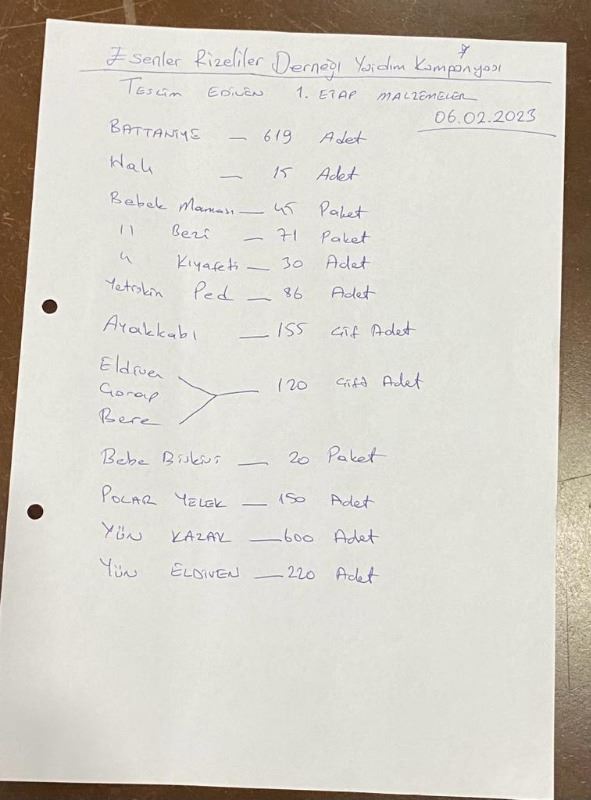 Esenler Rizeliler Derneği Yardım Kampanyası
TESLİM EDİLEN 1. ETAP MALZEMELER
06.02.2023
BATTANİYE — 619 Adet
Halı — 15 Adet
Bebek Maması — 45 Paket
" Bezi — 71 Paket
" Kıyafeti — 30 Adet
Yetişkin Ped — 86 Adet
Ayakkabı — 155 Çif Adet
Eldiven
Çorap — 120 Çift Adet
Bere
Bebe Bisküvi — 20 Paket
POLAR YELEK — 150 Adet
YÜN KAZAK — 600 Adet
YÜN ELDİVEN — 220 Adet